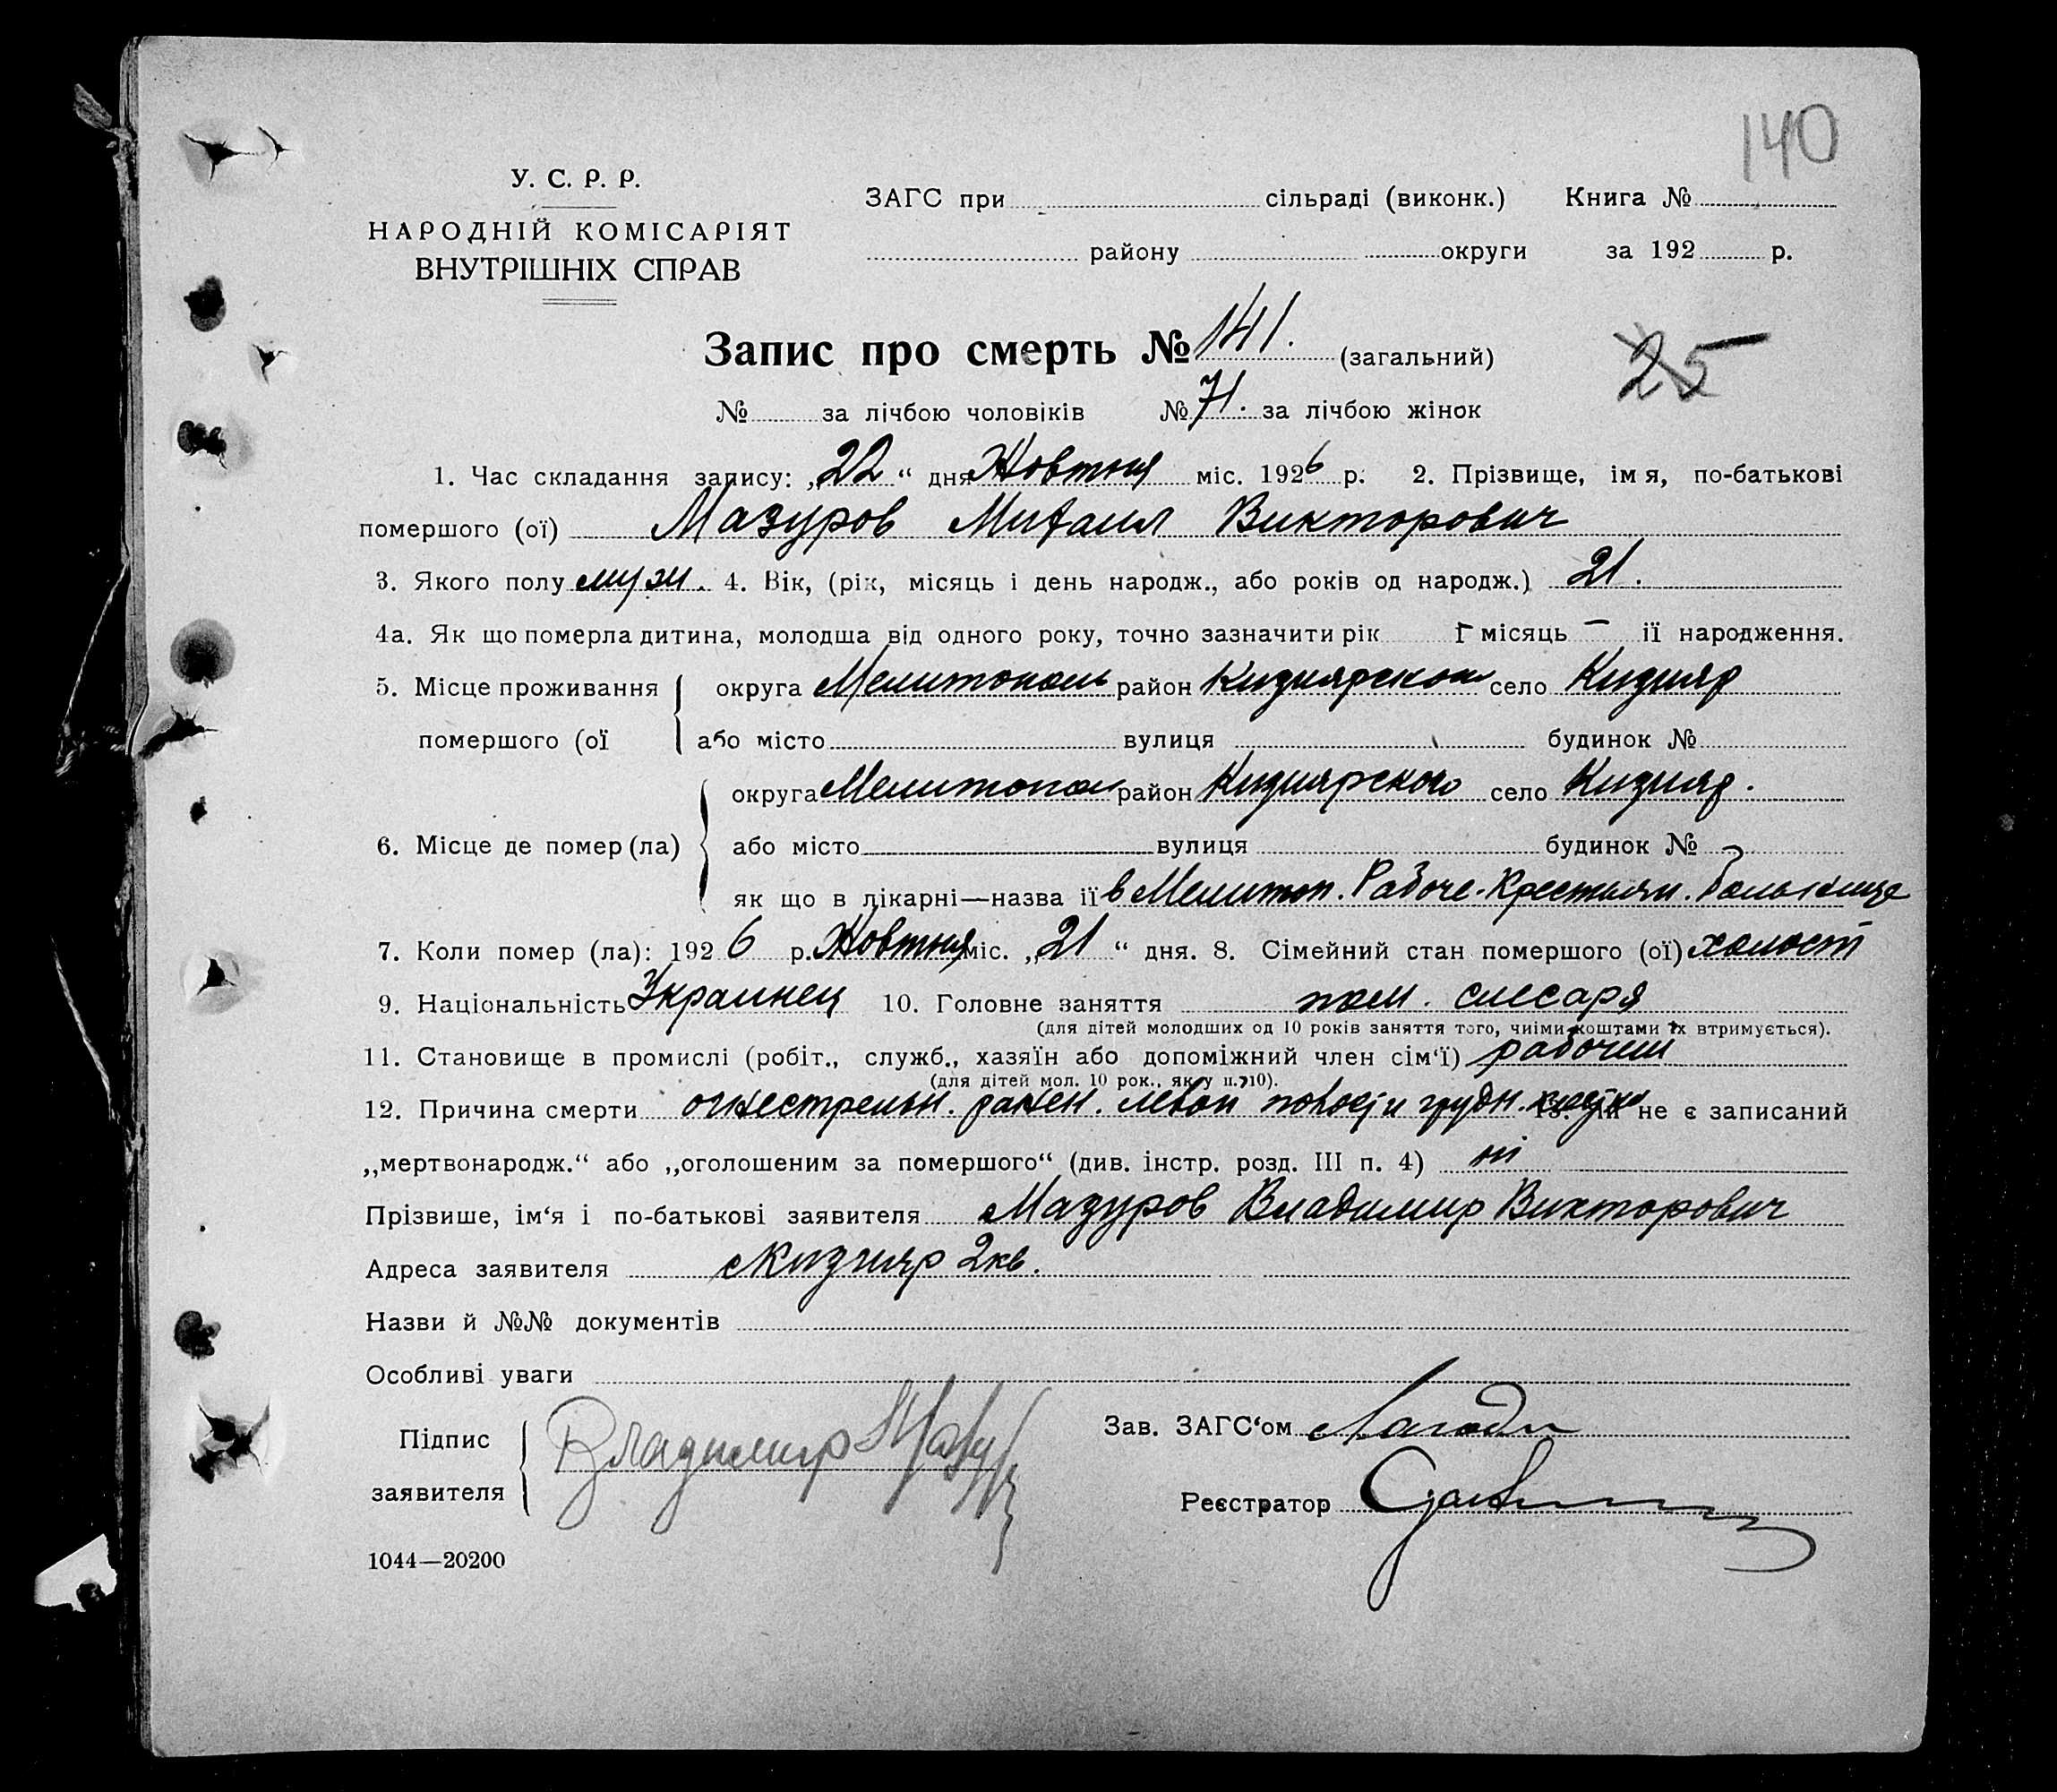 140
У. С. Р. Р.
НАРОДНІЙ КОМІСАРІЯТ
ВНУТРІШНІХ СПРАВ
ЗАГС при сільраді (виконк.) Книга №
району округи за 192 р.
Запис про смерть № 141. (загальний)
25
№ за лічбою чоловіків № 71. за лічбою жінок
1. Час складання запису: „22“ дня Жовтня міс. 1926 р. 2. Прізвище, імя, по-батькові
помершого (ої) Мазуров Михаил Викторович
3. Якого полу муж. 4. Вік, (рік, місяць і день народж., або років од народж.) 21.
4а. Як що померла дитина, молодша від одного року, точно зазначити рік місяць — її народження.
5. Місце проживання округа Мелитополь район Кизиярском село Кизияр
помершого (ої або місто вулиця будинок №
округа Мелитопол район Кизиярского село Кизияр.
6. Місце де помер (ла) або місто вулиця будинок №
як що в лікарні—назва її в Мелитоп. Рабоче-Крестьян. больнице
7. Коли помер (ла): 1926 р. Жовтня міс. „21“ дня. 8. Сімейний стан помершого (ої) холост
9. Національність Украинец 10. Головне заняття пом. слесаря
(для дітей молодших од 10 років заняття того, чиїми коштами їх втримується).
11. Становище в промислі (робіт., служб., хазяїн або допоміжний член сім‘ї) рабочий
(для дітей мол. 10 рок., як у п. 10).
12. Причина смерти огнестрельн. ранен. левой грудн. не є записаний
„мертвонародж.“ або „оголошеним за помершого“ (див. інстр. розд. III п. 4) ні
Прізвише, ім‘я і по-батькові заявителя Мазуров Владимир Викторович
Адреса заявителя Кизияр 2кв.
Назви й №№ документів
Особливі уваги
Підпис Владимир Зав. ЗАГС‘ом
заявителя Реєстратор
1044—20200